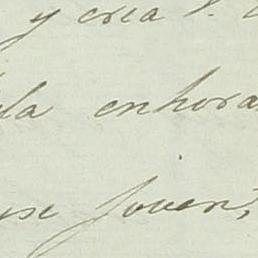 y crea V.
la enhora
se joven,